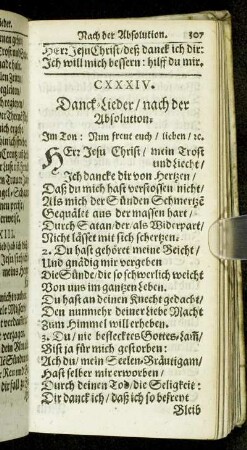 Nach der Absolution. 307
HErr Jesu Christ/ deß danck ich dir:
Ich will mich bessern: hilff du mir.
CXXXIV.
Danck-Lieder/ nach der
Absolution.
Im Ton: Nun freut euch/ lieben/ ꝛc.
HErr Jesu Christ/ mein Trost
und Liecht/
Ich dancke dir von Hertzen/
Daß du mich hast verstossen nicht/
Als mich der Sünden Schmertzē
Gequälet aus der massen hart/
Durch Satan/ der als Widerpart/
Nicht lässet mit sich schertzen.
2. Du hast gehöret meine Beicht/
Und gnädig mir vergeben
Die Sünde/ die so schwerlich weicht
Von uns im gantzen Leben.
Du hast an deinen Knecht gedacht/
Den nunmehr deiner Liebe Macht
Zum Himmel will erheben.
3. Du/ nie beflecktes Gottes-Lam̄/
Bist ja für mich gestorben:
Ach du/ mein Seelen-Bräutigam/
Hast selber mir erworben/
Durch deinen Tod/ die Seligkeit:
Dir danck ich/ daß ich so befreyt
Bleib